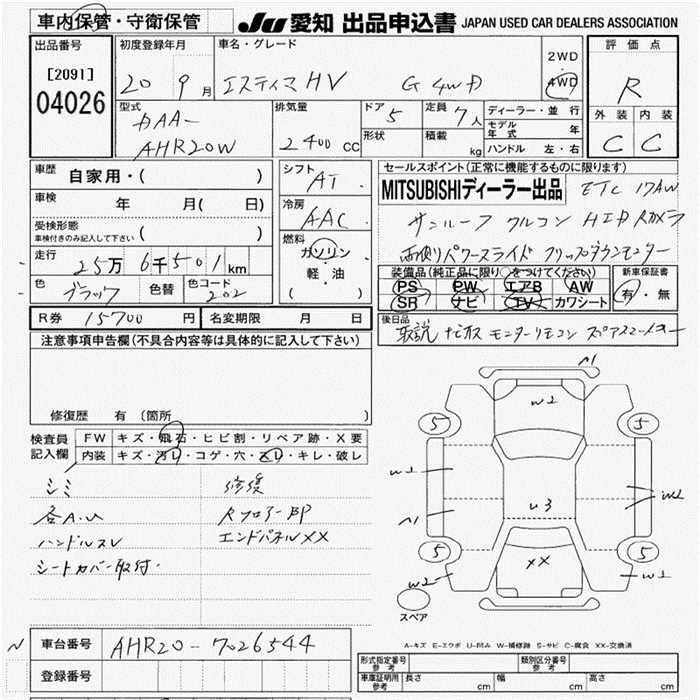 車内保管・守衛保管
JU 愛知 出品申込書 JAPAN USED CAR DEALERS ASSOCIATION
出品番号
[2091]
04026
初度登録年月
20 9月
車名・グレード
エスティマHV G 4WD
2WD
4WD
評価点
R
外装 内装
C C
型式
DAA-
AHR20W
排気量
2400 cc
ドア 5
形状
定員 7人
積載 kg
ディーラー・並行
モデル年式 年
ハンドル 左・右
車歴 自家用・( )
車検 年 月( 日)
受検形態
車検付きのみ記入して下さい ( )
走行 25万6千501km
色 ブラック 色替 色コード 202
シフト
AT
冷房
AAC
燃料
ガソリン
軽・油
( )
セールスポイント(正常に機能するものに限ります)
MITSUBISHIディーラー出品 ETC 17AW
サンルーフ クルコン HID Rカメラ
両側パワースライド フリップダウンモニター
装備品(純正品に限り○をつけてください)
PS PW エアB AW
SR ナビ TV カワシート
新車保証書
有・無
R券 15700円 名変期限 月 日
後日品
取説 ナビリモ モニターリモコン スペアスマートキー
注意事項申告欄(不具合内容等は具体的に記入して下さい)
修復歴 有(箇所 )
検査員記入欄
FW キズ・飛石・ヒビ割・リペア跡・X要
内装 キズ・汚レ・コゲ・穴・スレ・キレ・破レ
シミ 修復
各A.U RフロアーBP
ハンドルスレ エンドパネルXX
シートカバー取付
A1
W2
5 5
U3
5 5
XX
W2 W1
スペア
A-キズ E-エクボ U-凹み W-補修跡 S-サビ C-腐食 XX-交換済
車台番号 AHR20-7026544
登録番号
形式指定番号 参考
類別区分番号 参考
車庫証明用 参考 長さ cm 幅 cm 高さ cm